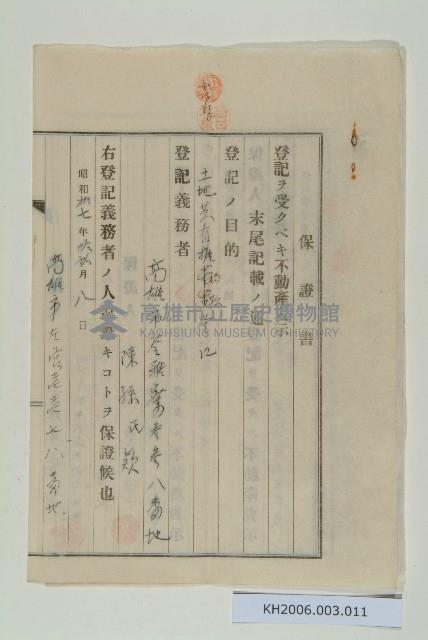 保證書
登記ヲ受クベキ不動產ノ表示
末尾記載ノ通
登記ノ目的
土地共有權
登記義務者
高雄市苓雅寮參參八番地
陳孫氏
右登記義務者ノ人違ナキコトヲ保證候也
昭和拾七年 月八日
高雄市左營 七八番地
高雄市立歷史博物館
KAOHSIUNG MUSEUM OF HISTORY
KH2006.003.011